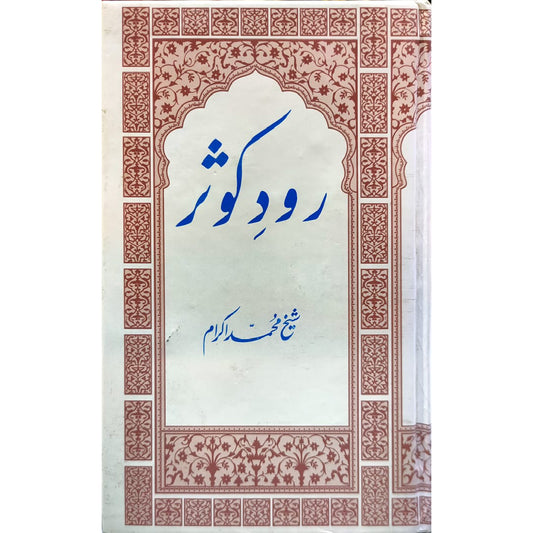 رودِ کوثر
شیخ محمّد اکرام